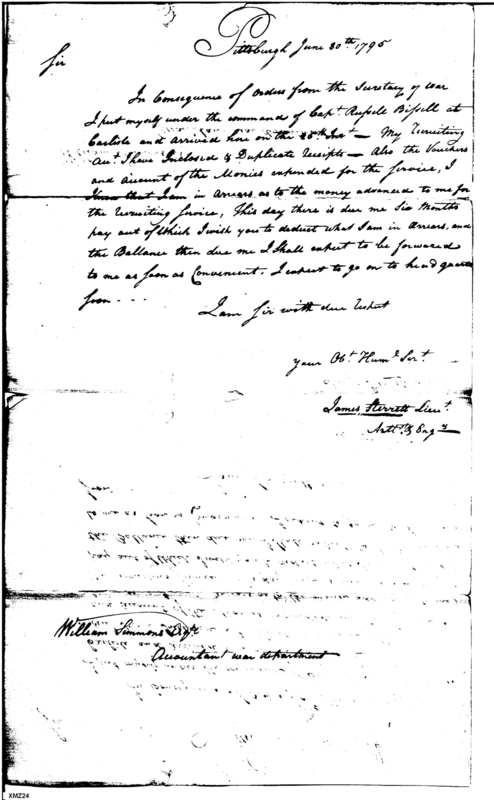 Pittsburgh June 30th 1795
Sir
In Consequence of Orders from the Secretary of war
I put myself under the command of Capt. Russell Bissell at
Carlisle and arrived here on the 28th Inst — My Recruiting
Act. I have Inclosed & Duplicate Receipts — Also the Vouchers
and account of the Monies expended for the Service, I
Know that I am in Arrears as to the money advanced to me for
the Recruiting Service, This day there is due me Six Months
pay out of Which I wish you to deduct what I am in Arrears, and
the Ballance then due me I Shall expect to be forwarded
to me as soon as Convenient. I expect to go on to head quarters
soon . . .
I am Sir with due respect
your Obt. Humb. Sert.
James Sterrett Lieut.
Artl. & Engrs
William Simmons Esqr.
Accountant war department
XMZ24